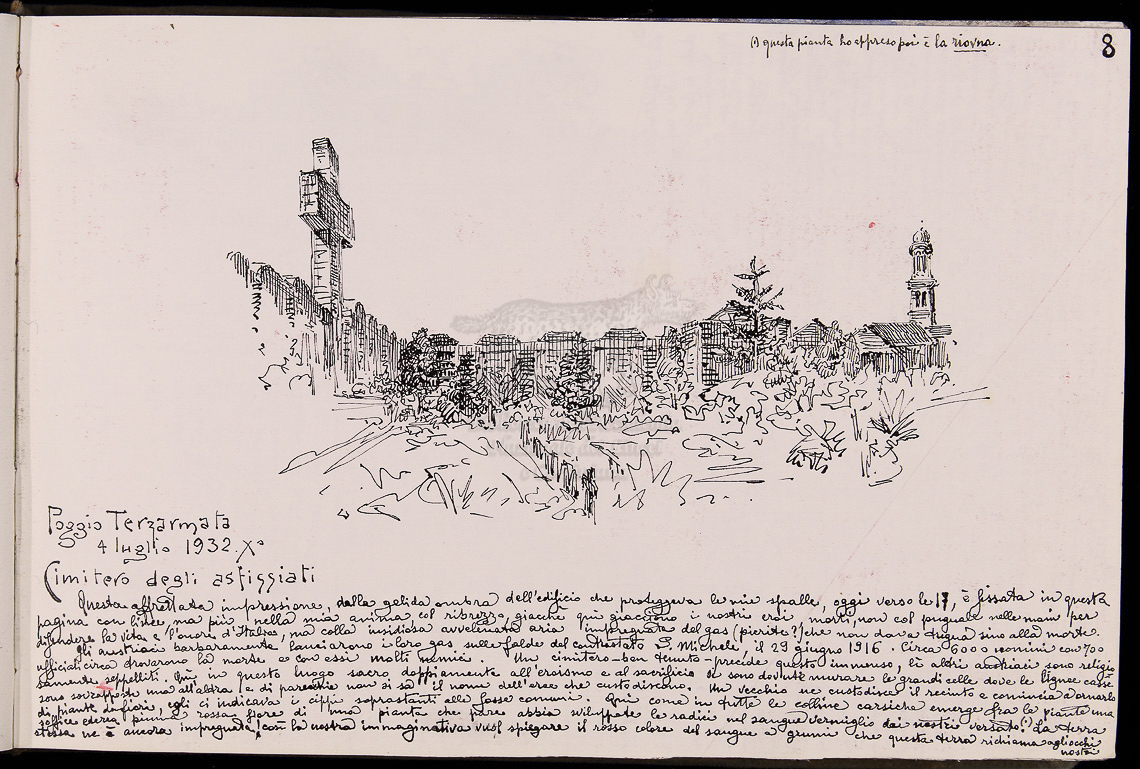 (*) questa pianta ho appreso poi è la riovna.
8
Poggio Terzarmata
4 luglio 1932. X°
Cimitero degli asfissiati
Questa affrettata impressione, dalla gelida ombra dell'edificio che protiggeva le mie spalle, oggi verso le 17, è fissata in questa
pagina con linee, ma più nella mia anima, col ribrezzo, giacche quì giacciono i nostri eroi morti, non col pugnale nelle mani per
difendere la vita e l'onore d'Italia, ma colla insidiosa avvelenata aria impregnata del gas (pierite?) che non dava tregua sino alla morte.
Gli austriaci barbaramente lanciarono i loro gas sulle falde del contrastato S. Michele, il 29 giugno 1916. Circa 6000 uomini con 700
ufficiali circa trovarono la morte e con essi molti nemici. Un cimitero ben tenuto precede questo immenso, lì altri austriaci sono religio
samente seppelliti. Quì in questo luogo sacro doppiamente all'eroismo e al sacrificio si sono dovute murare le grandi celle dove le lignee casse
sono sovrapposte una all'altra e di parecchie non si sa il nome dell'eroe che custodiscono. Un vecchio ne custodisce il recinto e comincia a ornarlo
di piante di fiori, egli ci indicava i cippi soprastanti alle fosse comuni. Quì come in tutte le colline carsiche emerge fra le piante una
soffice edera, piuma rossa, fiore di una pianta che pare abbia sviluppate le radici nel sangue vermiglio dai nostri versato. (*) La terra
stessa ne è ancora impregnata, con la nostra immaginativa vuol spiegare il rosso colore del sangue a grumi che questa terra richiama agli occhi
nostri